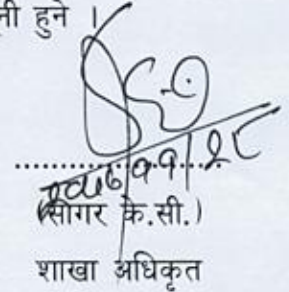 नी हुने ।
२०७६/११/२८
(सागर के.सी.)
शाखा अधिकृत